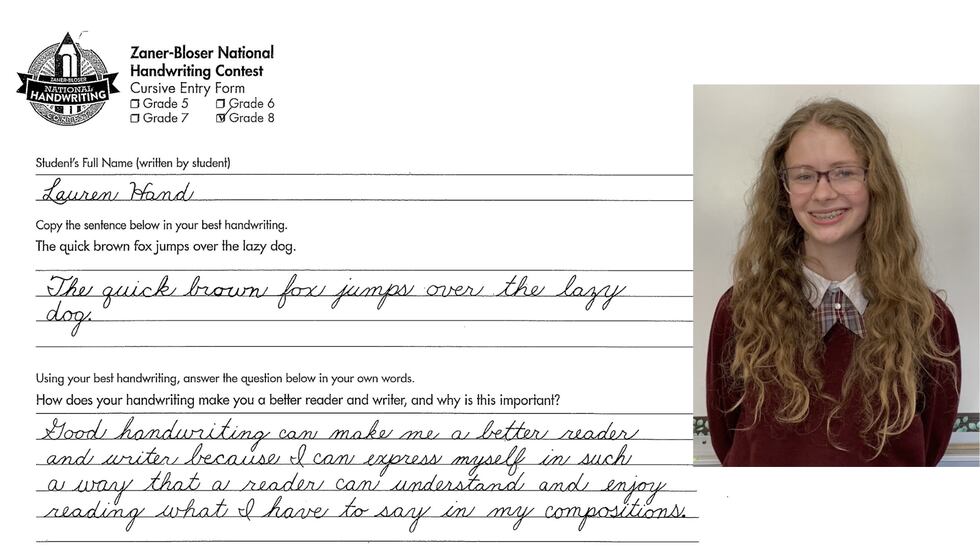 Zaner-Bloser National
Handwriting Contest
Cursive Entry Form
Grade 5 Grade 6
Grade 7 Grade 8
ZANER-BLOSER
NATIONAL
HANDWRITING
CONTEST
Student's Full Name (written by student)
Lauren Hand
Copy the sentence below in your best handwriting.
The quick brown fox jumps over the lazy dog.
The quick brown fox jumps over the lazy
dog.
Using your best handwriting, answer the question below in your own words.
How does your handwriting make you a better reader and writer, and why is this important?
Good handwriting can make me a better reader
and writer because I can express myself in such
a way that a reader can understand and enjoy
reading what I have to say in my compositions.